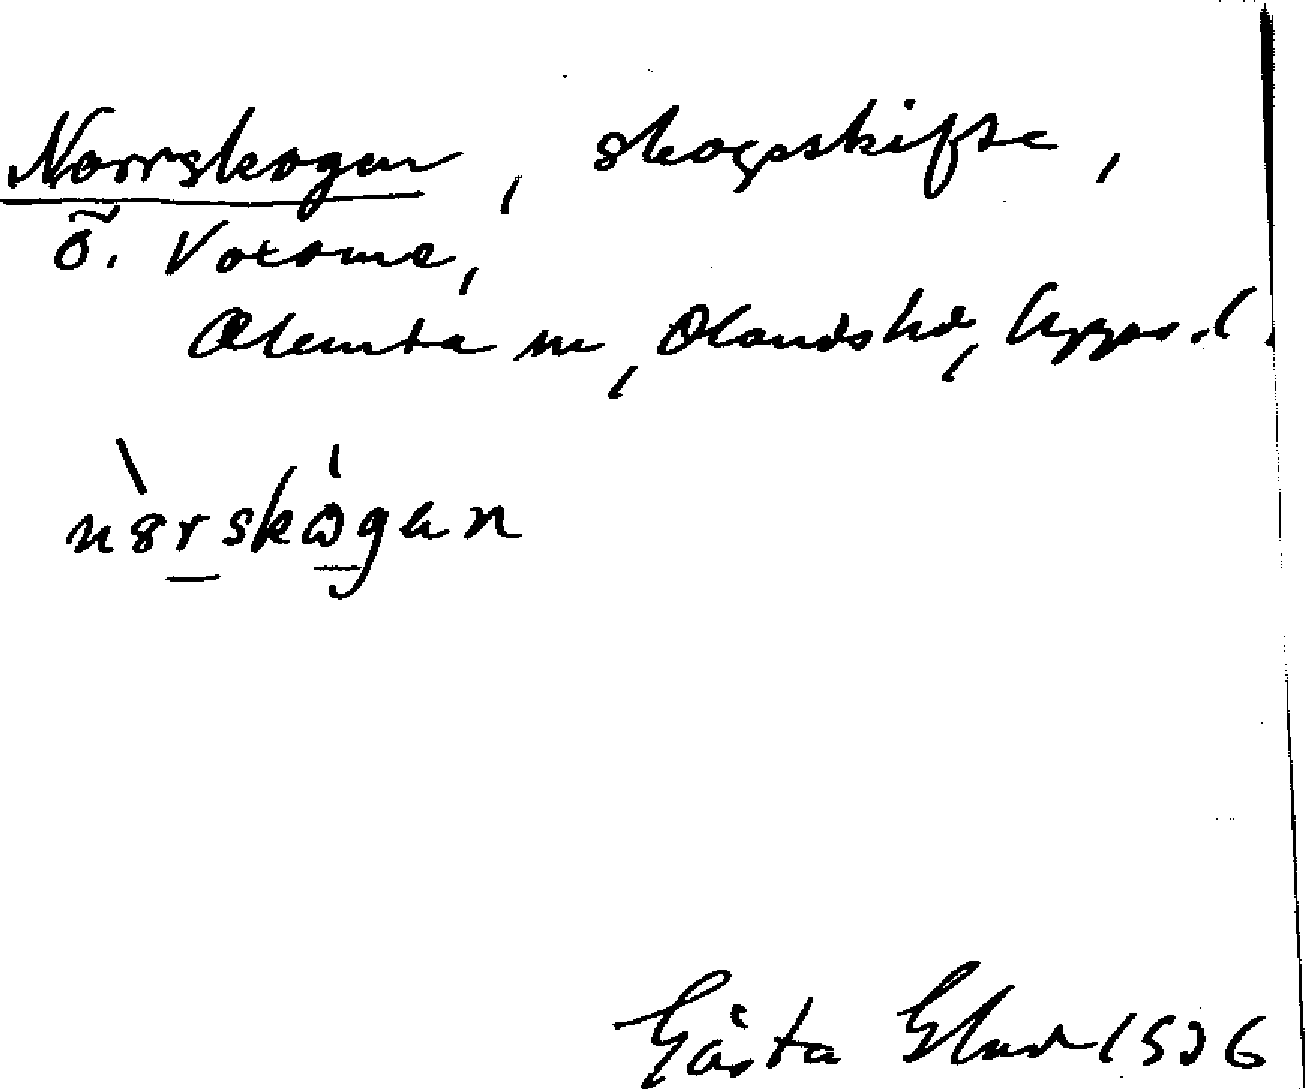 Norrskogen, skogsskifte,
Ö. Voxome,
Alunda sn, Olands hd, Upps. l.
nørskogan
Gösta Elud 1936